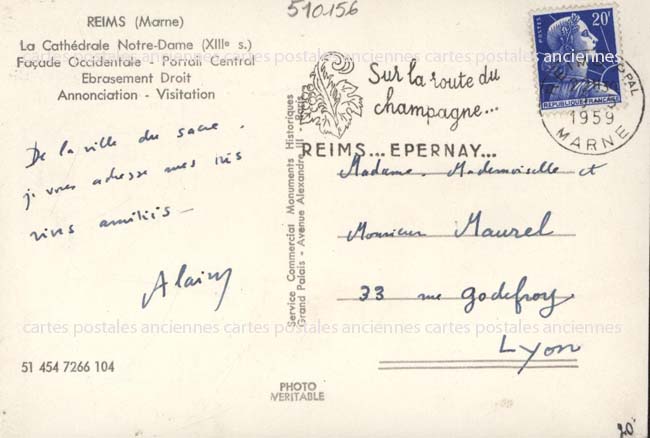 510.156
REIMS (Marne)
La Cathédrale Notre-Dame (XIIIe s.)
Façade Occidentale - Portail Central
Ebrasement Droit
Annonciation - Visitation
De la ville du sacre.
je vous adresse mes très
vives amitiés
Alain
51 454 7266 104
Service Commercial Monuments Historiques
Grand Palais - Avenue Alexandre III - Paris
PHOTO
VERITABLE
Sur la route du
champagne...
REIMS... EPERNAY...
20F
REPUBLIQUE FRANÇAISE
1959
MARNE
Madame, Mademoiselle et
Monsieur Maurel
33 rue Godefroy
Lyon
cartes postales anciennes cartes postales anciennes cartes postales anciennes
cartes postales anciennes cartes postales anciennes cartes postales anciennes
20